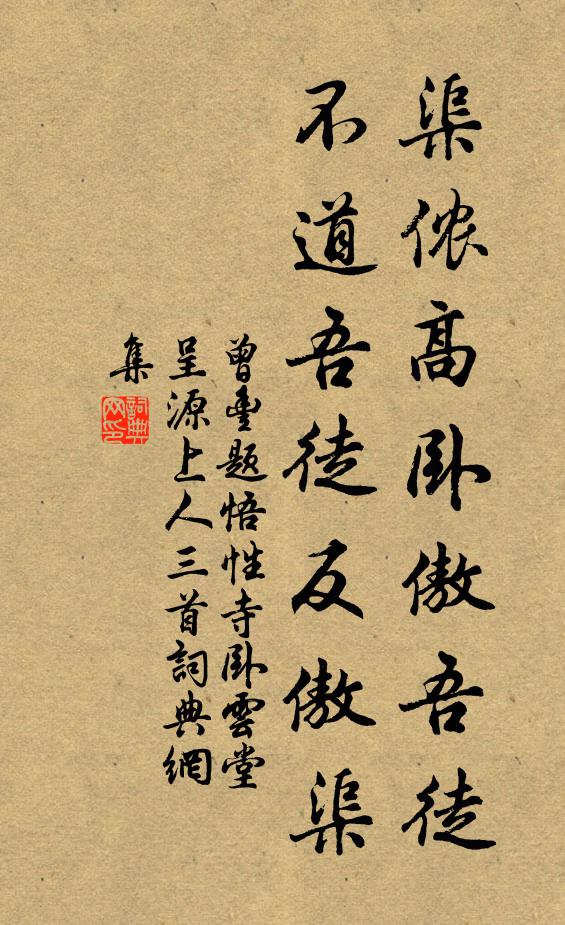 渠侬高卧傲吾徒
不道吾徒反傲渠
曾豊題悟性寺卧雲堂
呈源上人三首詞典網
集
詞典
网印